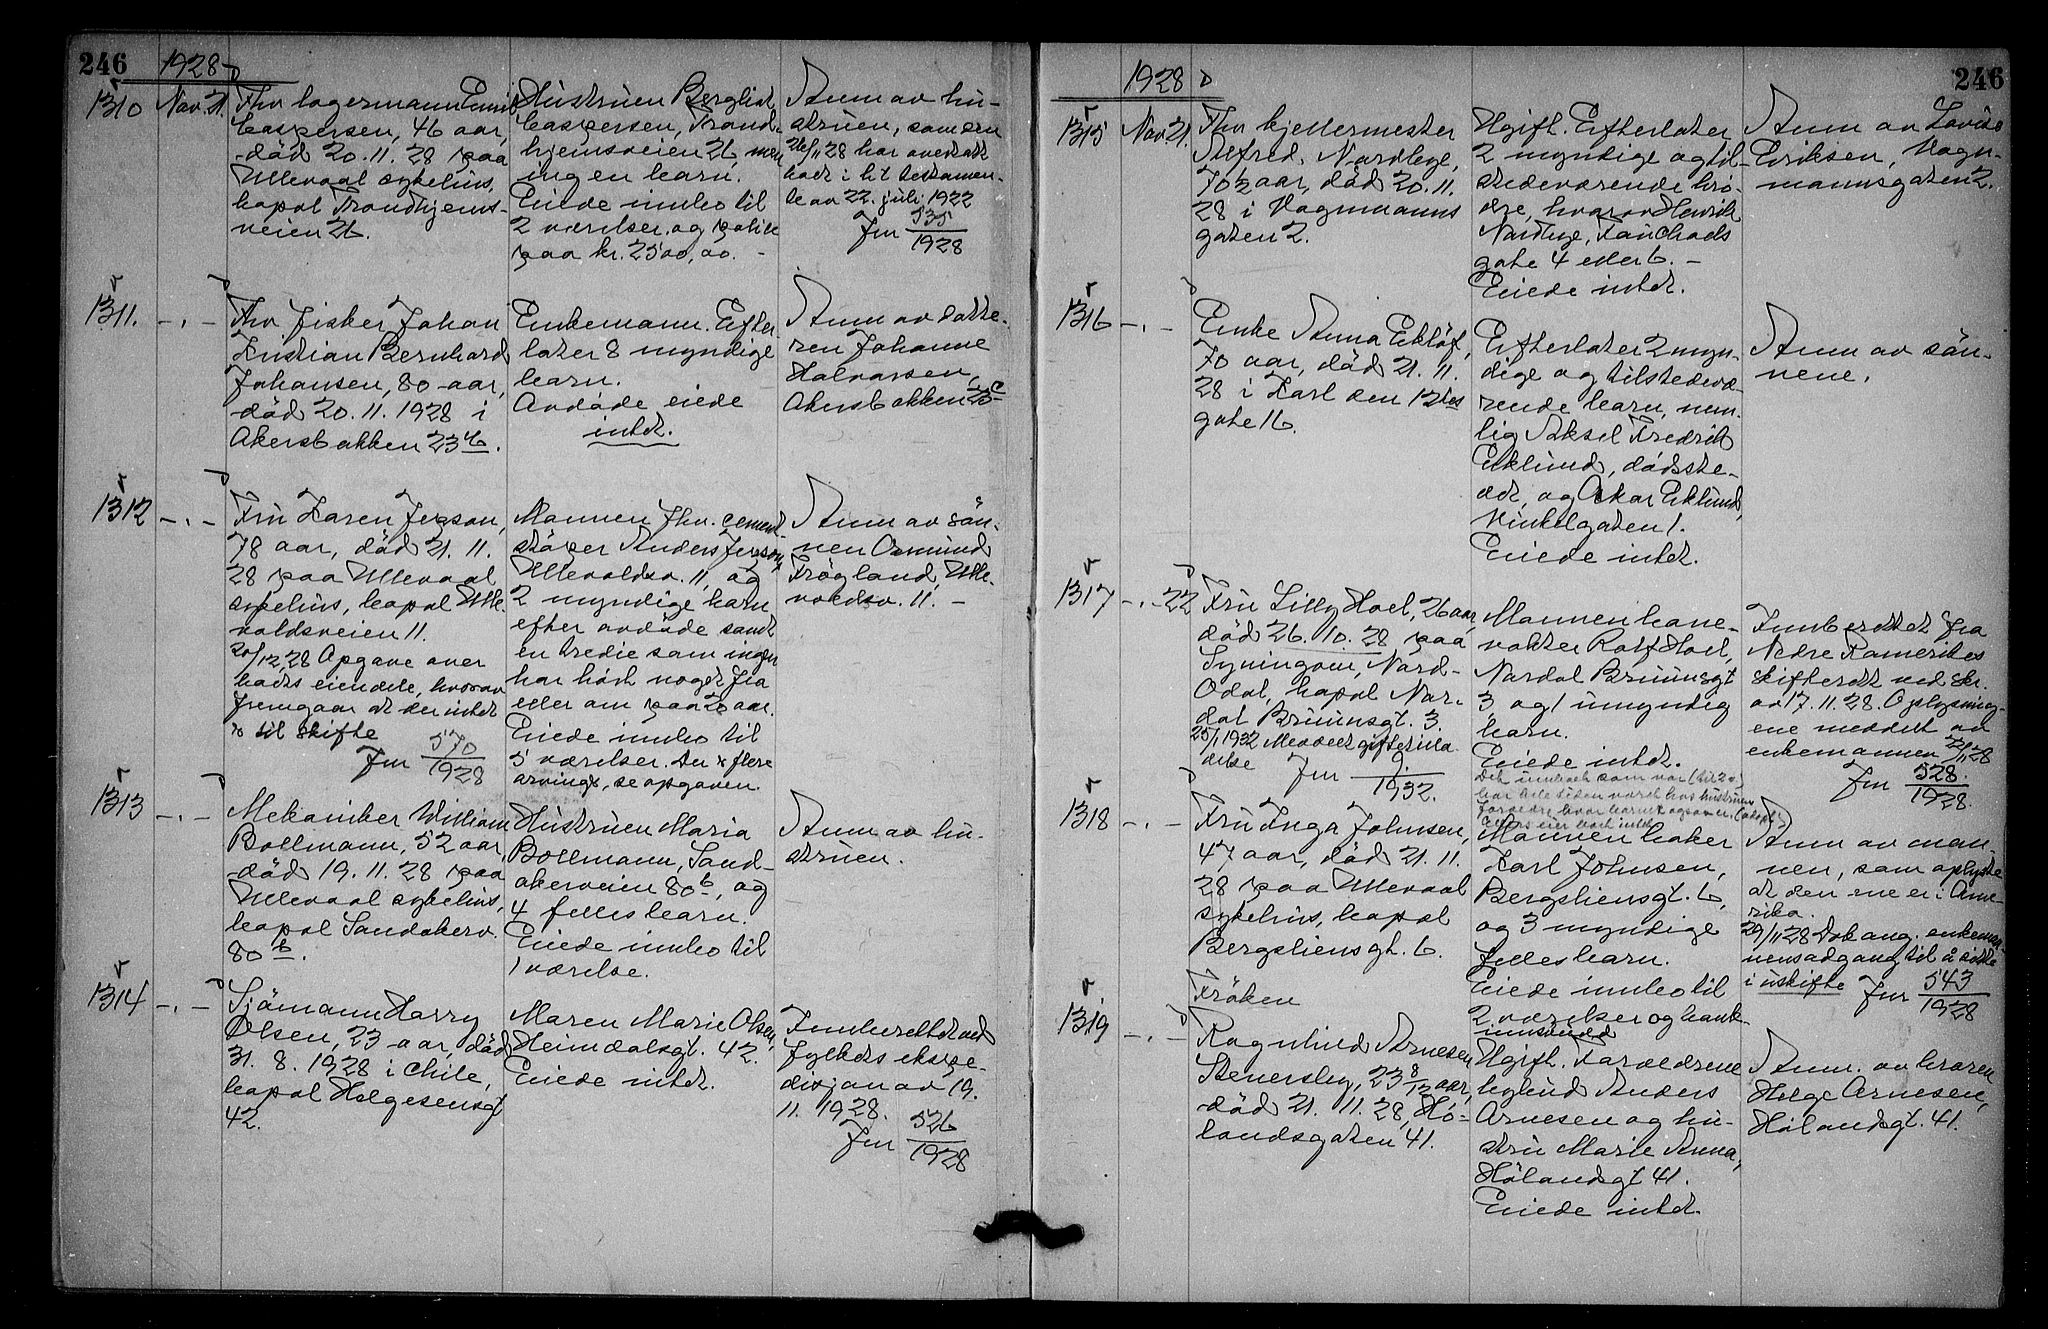 246
1928
1310
Nov. 21.
Fhv lagermann Emil
Caspersen, 46 aar,
död 20. 11. 28 paa
Ullevaal sykehus,
bopæl Trondhjems-
veien 26.
Hustruen Bergliot
Caspersen, Trond-
hjemsveien 26, men
ingen barn.
Eiede innbo til
2 værelser og polise
paa kr. 2500,00. -
Anm av hu-
struen, som den
26/11 28 har avertert
bodt i h.t testamen-
te av 22. juli 1922
Jnr 535/1928
1311.
Fhv fisker Johan
Kristian Bernhard
Johansen, 80 aar,
död 20. 11. 1928 i
Akersbakken 23
Enkemann. Efter-
later 8 myndige
barn.
Avdöde eiede
intet.
Anm av datte-
ren Johanne
Halvorsen,
Akersbakken
1312
Fru Karen Jepson,
78 aar, död 21. 11.
28 paa Ullevaal
sykehus, bopæl Ulle-
voldsveien 11.
20/12 28 Opgave over
boets eiendele, hvorav
fremgaar at der intet
er til skifte
Jnr 570/1928
Mannen fhv. cement-
stöper Anders Jepson,
Ullevoldsv. 11, og
2 myndige barn
efter avdöde samt
en tredie som ingen
har hört noget fra
eller om paa 20 aar.
Eiede innbo til
5 værelser. Der er flere
arvinger, se opgaven.
Anm av sön-
nen Osmund
Frögland, Ulle-
voldsv. 11. -
1313
Mekaniker William
Bollmann, 52 aar,
död 19. 11. 28 paa
Ullevaal sykehus,
bopæl Sandakerv.
80 b.
Hustruen Maria
Bollmann, Sand-
akerveien 80 b, og
4 fellesbarn.
Eiede innbo til
1 værelse.
Anm av hu-
struen.
1314
Sjömann Harry
Olsen, 23 aar, död
31. 8. 1928 i Chile,
bopæl Helgesensgt
42.
Maren Marie Olsen,
Heimdalsgt. 42.
Eiede intet.
Innberettet ved
fylkets ekspe-
disjon av 19.
11. 1928.
Jnr 526/1928
1928
246
1315
Nov. 21.
Fhv kjellermester
Alfred Nordbye,
70 aar, död 20. 11.
28 i Vognmanns
gaten 2.
Ugift. Efterlater
2 myndige og til-
stedeværende brö-
dre, hvorav Henrik
Nordbye, Fauchalds
gate 4 eller 6. -
Eiede intet.
Anm av Lovise
Eriksen, Vogn-
mannsgaten 2.
1316
Enke Anna Eklöf,
70 aar, död 21. 11.
28 i Karl den 12tes
gate 16.
Efterlater 2 myn-
dige og tilstedevæ-
rende barn, nem-
lig Aksel Fredrik
Eklund, dödsste-
det, og Oskar Eklund,
Vinkelgaten 1.
Eiede intet.
Anm av sön-
nene.
1317
22
Fru Lilly Hoel, 26 aar,
död 26. 10. 28 paa
Nord-
Odal, bopæl Nor-
dal Bruunsgt. 3
25/1 1932 Meddelt giftetilla-
delse Jnr 9/1932.
Mannen bane-
vokter Rolf Hoel,
Nordal Bruunsgt
3 og 1 umyndig
barn.
Eiede intet.
Det innboet som var (til 2 v.)
har hele tiden været hos hustruens
foreldre, hvor barnet også er. (adopt.)
Ellers eier boet intet
Innberettet fra
Nedre Romerikes
skifterett ved skr.
av 17. 11. 28. Oplysning-
ene meddelt av
enkemannen
Jnr 528/1928.
1318
Fru Inga Johnsen,
47 aar, död 21. 11.
28 paa Ullevaal
sykehus, bopæl
Bergsliensgt. 6.
Mannen baker
Karl Johnsen,
Bergsliensgt. 6,
og 3 myndige
fellesbarn.
Eiede innbo til
2 værelser og bank-
innskudd
Anm av man-
nen, som oplyste
at den ene er i Ame-
rika.
29/11 28 Dok ang. enkeman-
nens adgang til å sitte
i uskifte Jnr 543/1928
1319
Fröken
Ragnhild Arnesen
Stenersby, 23 8/12 aar,
död 21. 11. 28, Hö-
landsgaten 41.
Ugift. Foreldrene
bybud Anders
Arnesen og hu-
stru Marie Anna,
Hölandsgt 41.
Eiede intet.
Anm. av broren
Helge Arnesen,
Hölandsgt. 41.